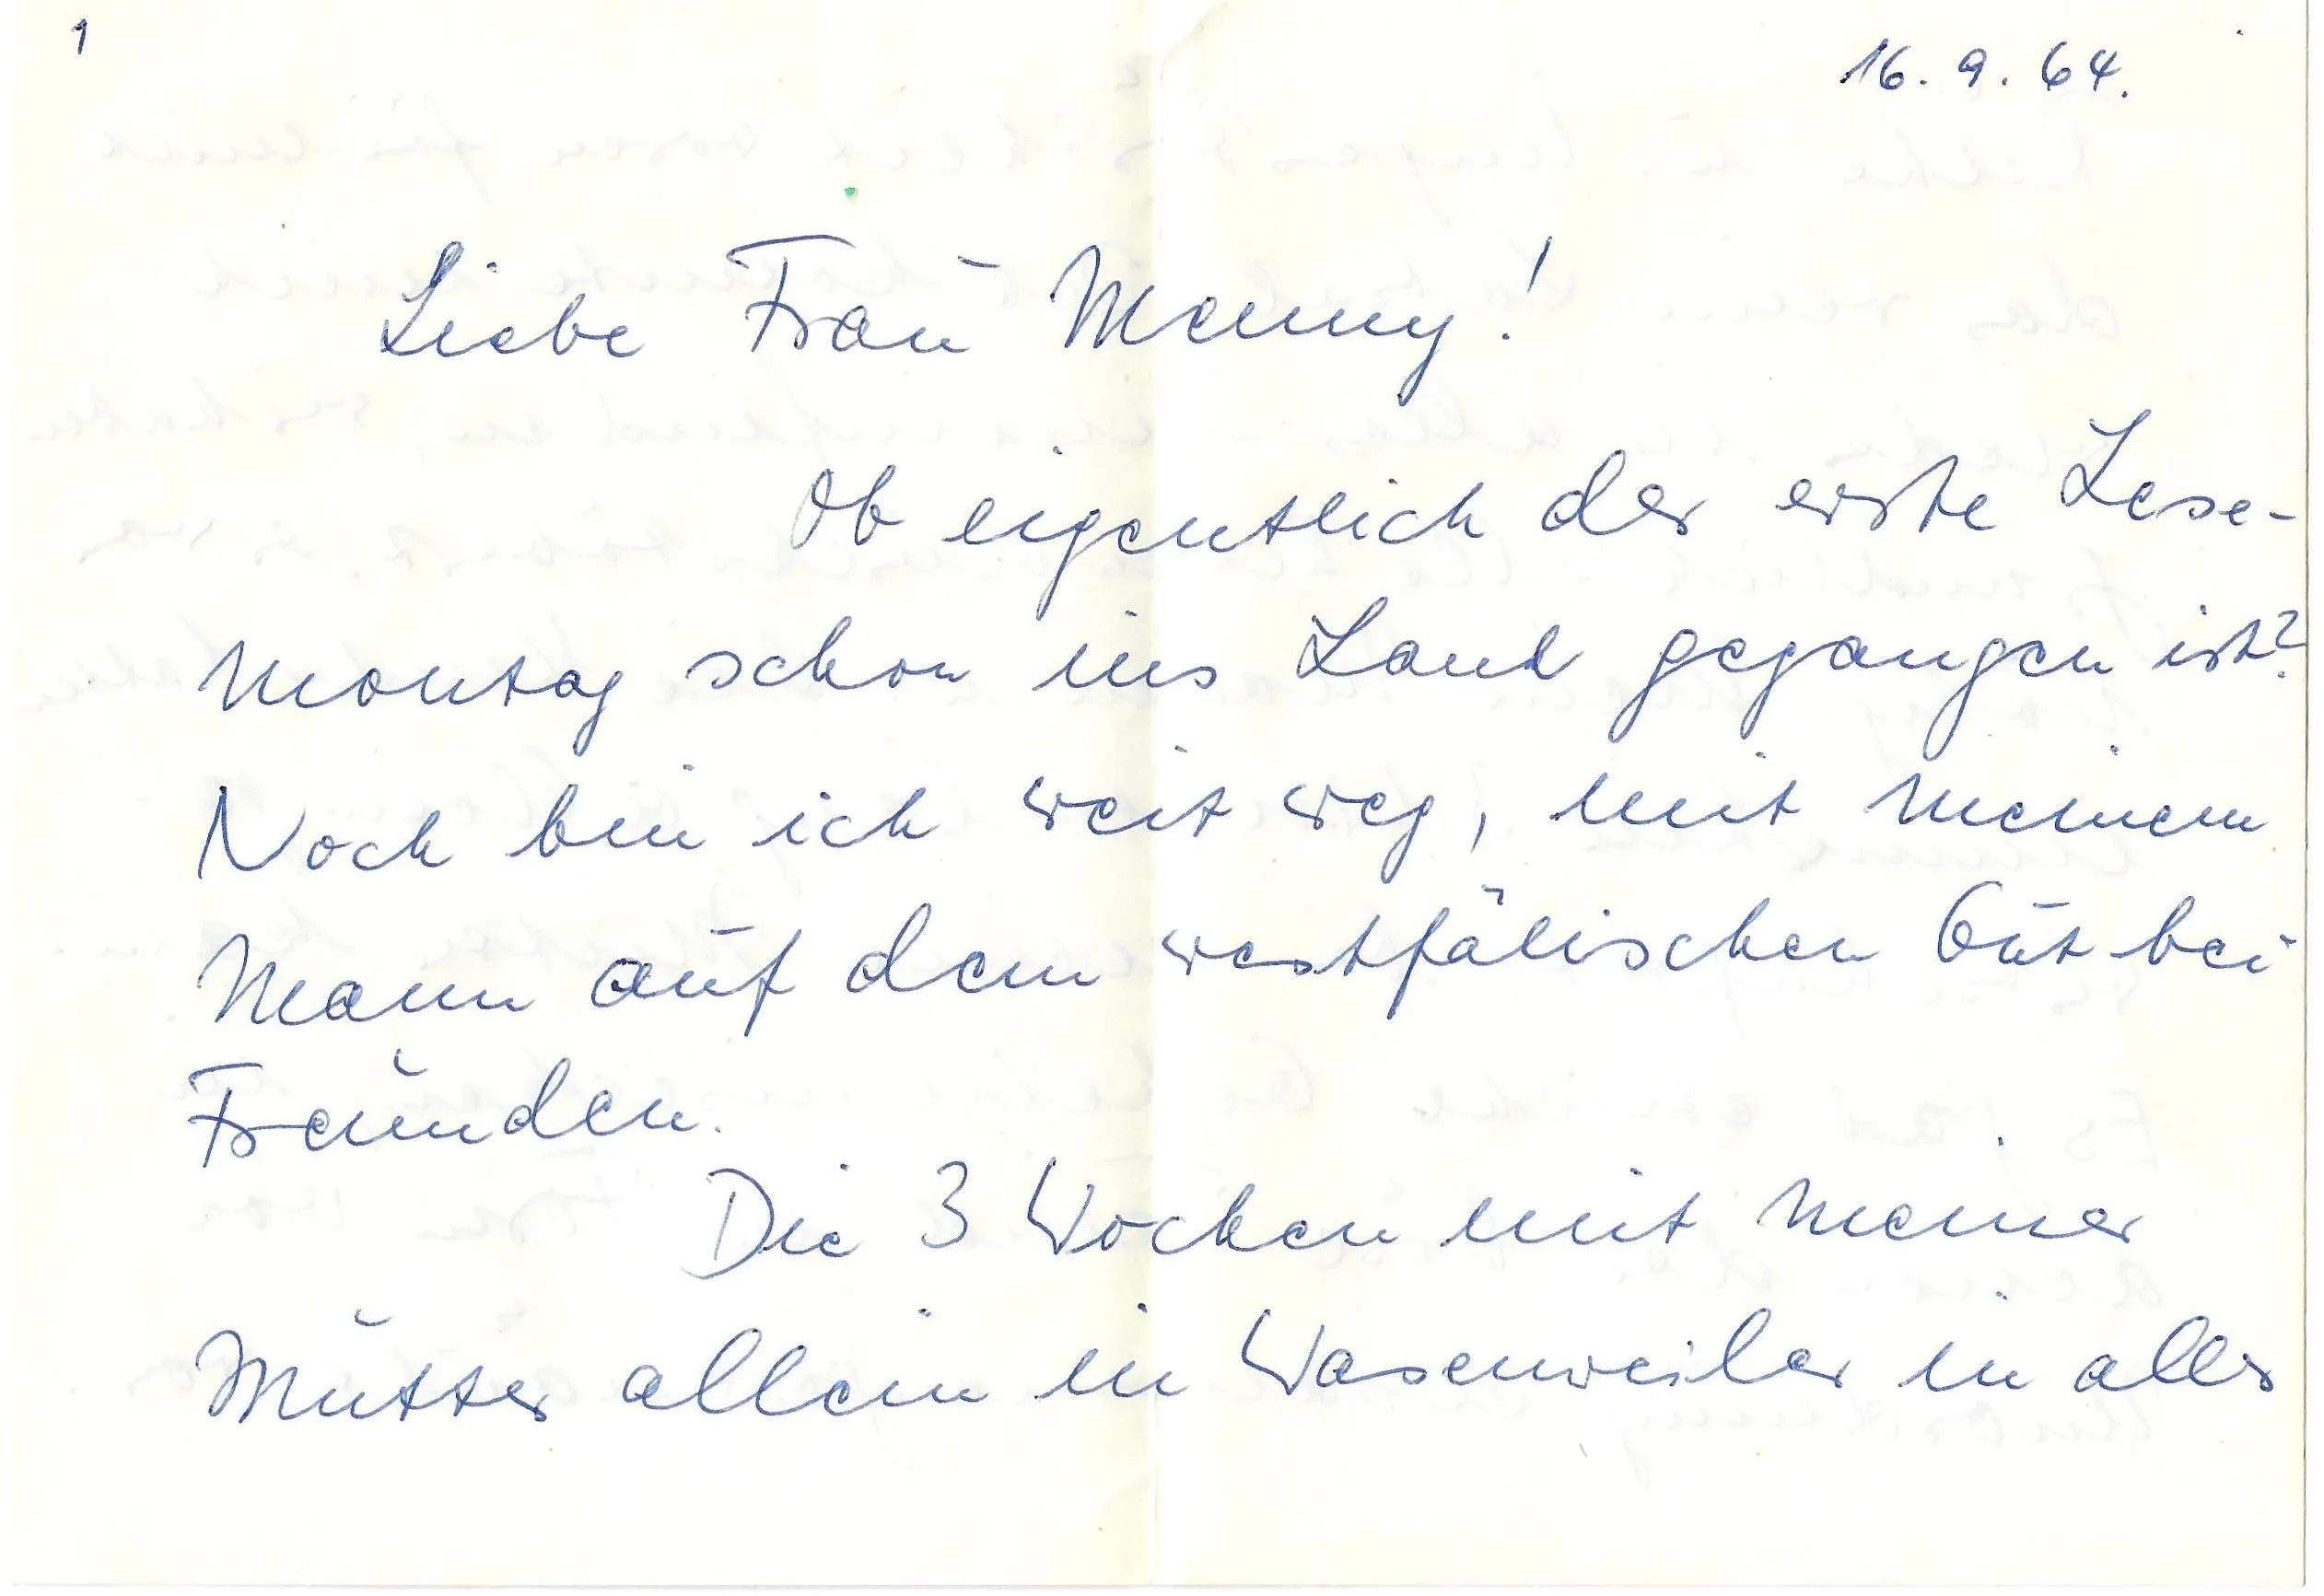 1
16. 9. 64.
Liebe Frau Menny!
Ob eigentlich der erste Lese-
montag schon ins Land gegangen ist?
Noch bin ich weit weg, mit meinem
Mann auf dem westfälischen Gut bei
Freunden.
Die 3 Wochen mit meiner
Mutter allein in Wasenweiler in aller